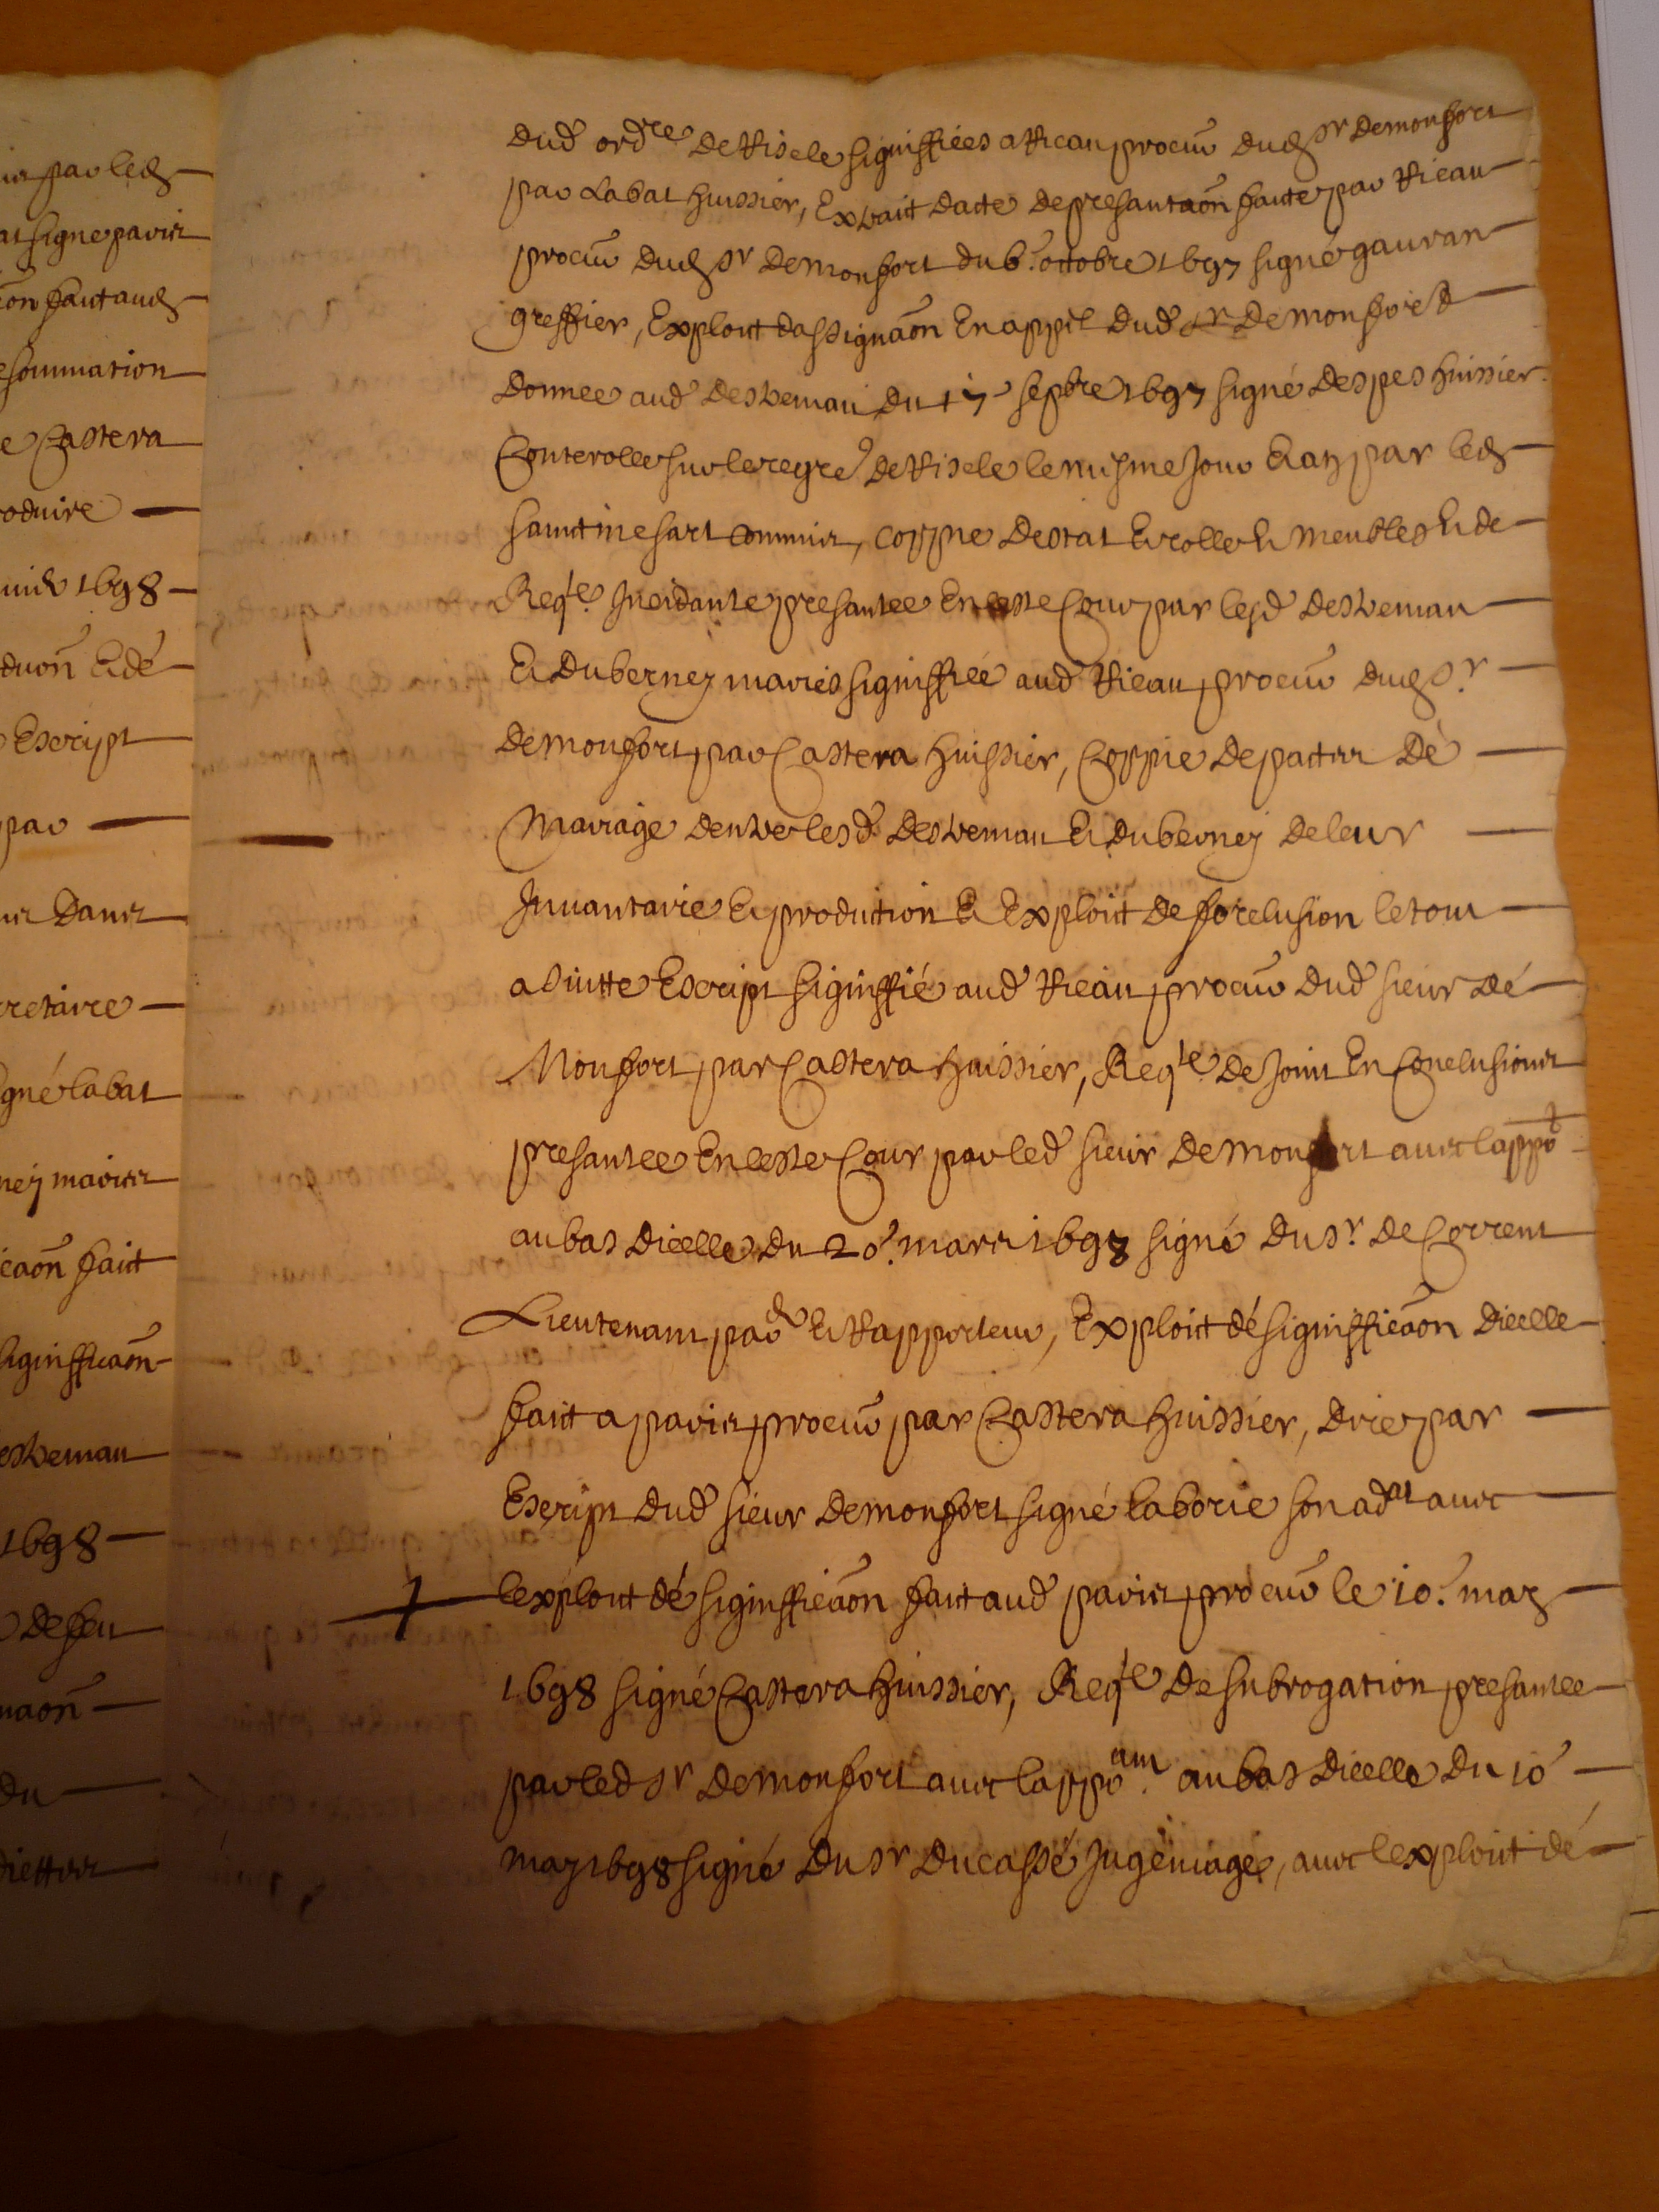 ur par led
at signe paris
on fait aud
sommation
e Castera
oduire
1698
duõn Et dé
Escript
par
dans
cretaire
gné labat
ney maries
icaõn faict
signifficaõn
estreman
1698
de feu
naõn
du
dud ordre de Risele signiffiées a Rieau procur̃ dud sr demonfort
par Labat huissier, Extrait dacte de presantaõn faite par Rieau
procur̃ dud sr demonfort du 6e octobre 1697 signé gauran
greffier, Exploit dassignaõn En appel dud sr demonfort
donnee aud destreman du 17e sepbre 1697 signé despes huissier
Conterolle sur le regre de Risele le mesme jour Et an par led
sainctmesart commis, coppie destat Et rolle de meubles Et de
Reqte Incidante presantee En ceste Cour par lesd destreman
Et duberney maries signiffiee aud Rieau procur̃ dud sr
demonfort par Castera huissier, Coppie de pactes dé
Mariage dentre lesd destreman Et duberney de leur
Inuantaire Et production Et Exploit de forclusion le tout
a suitte Escript signiffié aud Rieau procur̃ dud sieur dé
Monfort par Castera huissier, Reqte de joint En Conclusions
presantee En ceste Cour par led sieur demonfort auec lappot
au bas dicelle du 20e mars 1698 signé du sr de Corrent
Lieutenant par Et Rapporteur, Exploit dé signifficaõn dicelle
faict a paris procur̃ par Castera huissier, dire par
Escript dud sieur demonfort signé laborie son adat auec
lexploit dé signifficaõn fait aud paris procur̃ le 10e may
1698 signé Castera huissier, Reqte de subrogation presantee
par led sr demonfort auec lappoam au bas dicelle du 10
may 1698 signé du sr ducassé Juge mage, auec lexploit dé